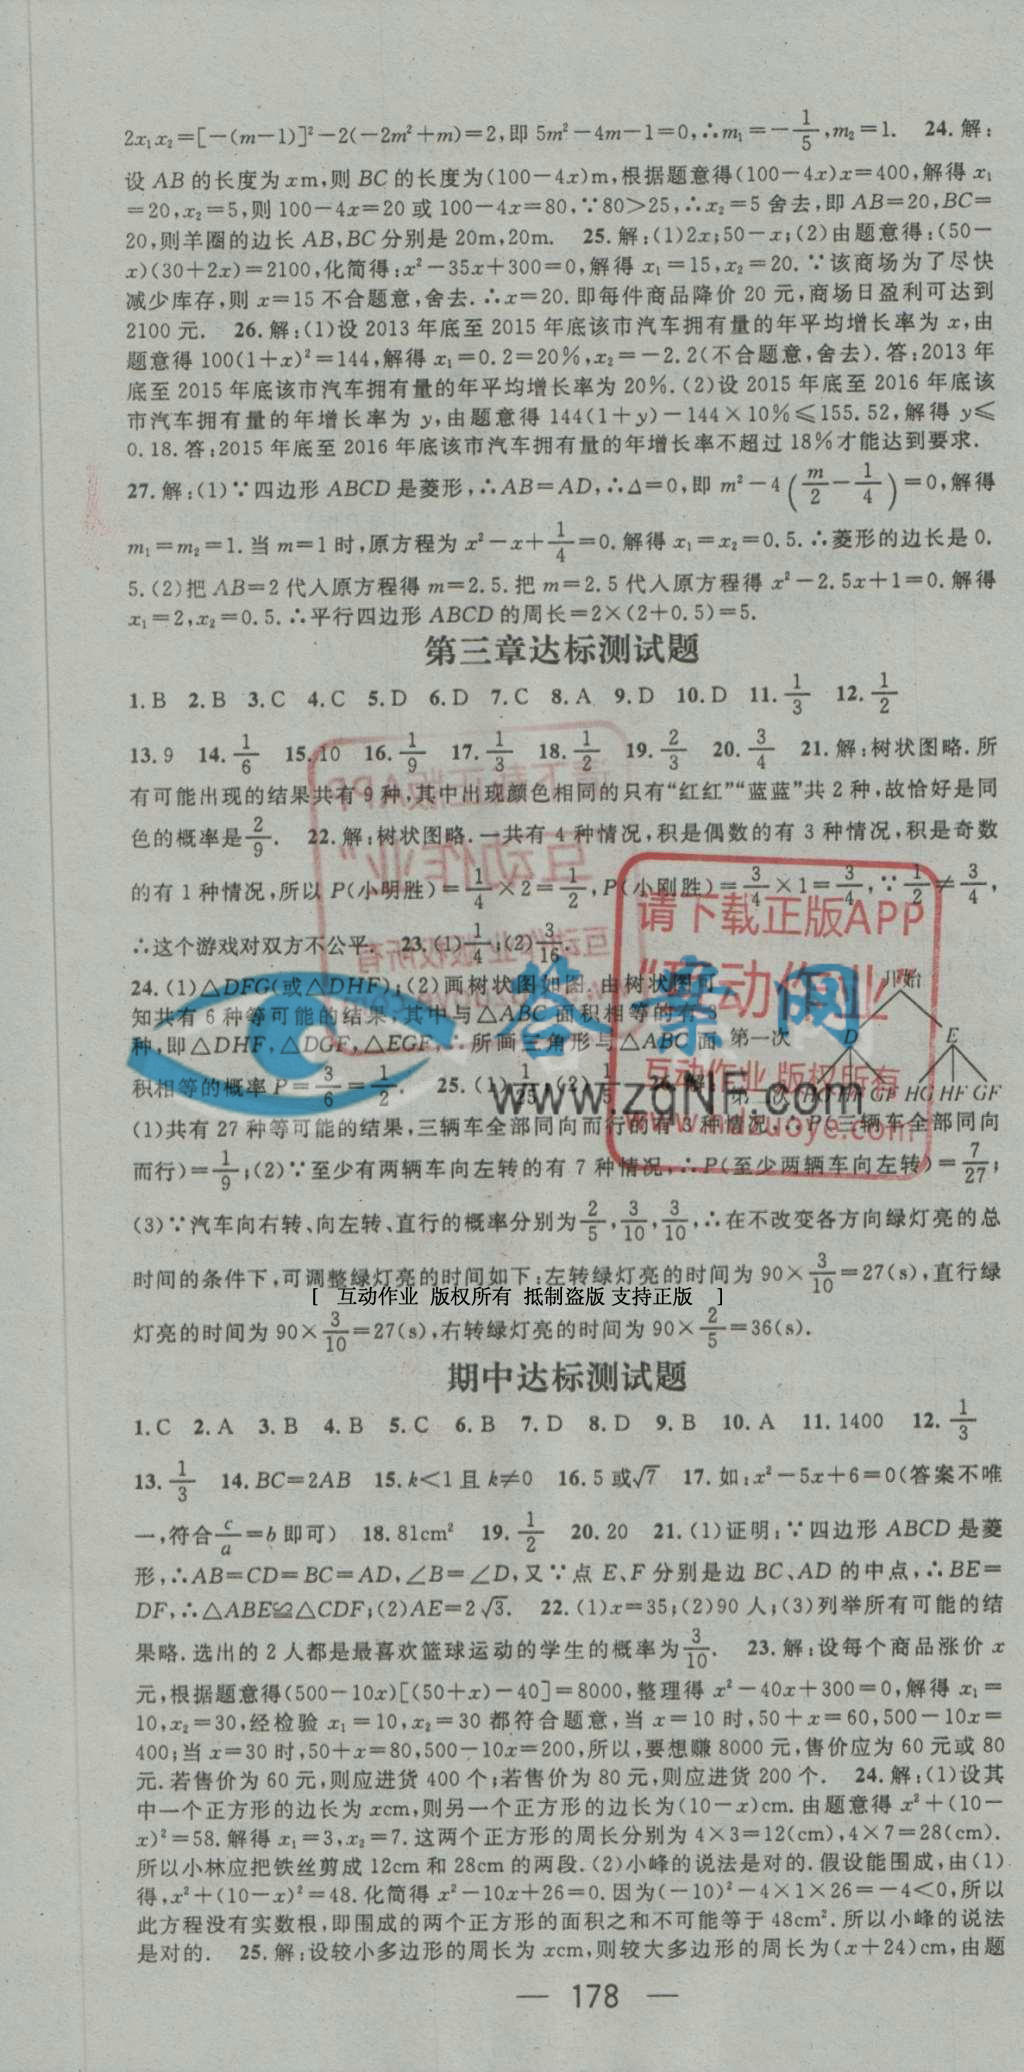 2x₁x₂=[-(m-1)]²-2(-2m²+m)=2,即5m²-4m-1=0,∴m₁=-1/5,m₂=1. 24.解:
设AB的长度为xm,则BC的长度为(100-4x)m,根据题意得(100-4x)x=400,解得x₁
=20,x₂=5,则100-4x=20或100-4x=80,∵80>25,∴x₂=5舍去,即AB=20,BC=
20,则羊圈的边长AB,BC分别是20m,20m. 25.解:(1)2x;50-x;(2)由题意得:(50-
x)(30+2x)=2100,化简得:x²-35x+300=0,解得x₁=15,x₂=20.∵该商场为了尽快
减少库存,则x=15不合题意,舍去.∴x=20.即每件商品降价20元,商场日盈利可达到
2100元. 26.解:(1)设2013年底至2015年底该市汽车拥有量的年平均增长率为x,由
题意得100(1+x)²=144,解得x₁=0.2=20%,x₂=-2.2(不合题意,舍去).答:2013年
底至2015年底该市汽车拥有量的年平均增长率为20%.(2)设2015年底至2016年底该
市汽车拥有量的年增长率为y,由题意得144(1+y)-144×10%≤155.52,解得y≤
0.18.答:2015年底至2016年底该市汽车拥有量的年增长率不超过18%才能达到要求.
27.解:(1)∵四边形ABCD是菱形,∴AB=AD,∴Δ=0,即m²-4(m/2-1/4)=0,解得
m₁=m₂=1.当m=1时,原方程为x²-x+1/4=0.解得x₁=x₂=0.5.∴菱形的边长是0.
5.(2)把AB=2代入原方程得m=2.5.把m=2.5代入原方程得x²-2.5x+1=0.解得
x₁=2,x₂=0.5.∴平行四边形ABCD的周长=2×(2+0.5)=5.
第三章达标测试题
1.B 2.B 3.C 4.C 5.D 6.D 7.C 8.A 9.D 10.D 11.1/3 12.1/2
13.9 14.1/6 15.10 16.1/9 17.1/3 18.1/2 19.2/3 20.3/4 21.解:树状图略.所
有可能出现的结果共有9种,其中出现颜色相同的只有“红红”“蓝蓝”共2种,故恰好是同
色的概率是2/9. 22.解:树状图略.一共有4种情况,积是偶数的有3种情况,积是奇数
的有1种情况,所以P(小明胜)=1/4×2=1/2,P(小刚胜)=3/4×1=3/4,∵1/2≠3/4,
∴这个游戏对双方不公平. 23.(1)1/4;(2)3/16.
24.(1)△DFG(或△DHF);(2)画树状图如图.由树状图可
知共有6种等可能的结果,其中与△ABC面积相等的有3
种,即△DHF,△DGF,△EGF,∴所画三角形与△ABC面
积相等的概率P=3/6=1/2. 25.(1)1/25;(2)1/5 26.解:
开始
第一次 D E
第二次 HG HF GF HG HF GF
(1)共有27种等可能的结果,三辆车全部同向而行的有3种情况,∴P(三辆车全部同向
而行)=1/9;(2)∵至少有两辆车向左转的有7种情况,∴P(至少两辆车向左转)=7/27;
(3)∵汽车向右转、向左转、直行的概率分别为2/5,3/10,3/10,∴在不改变各方向绿灯亮的总
时间的条件下,可调整绿灯亮的时间如下:左转绿灯亮的时间为90×3/10=27(s),直行绿
[ 互动作业 版权所有 抵制盗版 支持正版 ]
灯亮的时间为90×3/10=27(s),右转绿灯亮的时间为90×2/5=36(s).
期中达标测试题
1.C 2.A 3.B 4.B 5.C 6.B 7.D 8.D 9.B 10.A 11.1400 12.1/3
13.1/3 14.BC=2AB 15.k<1且k≠0 16.5或√7 17.如:x²-5x+6=0(答案不唯
一,符合c/a=b即可) 18.81cm² 19.1/2 20.20 21.(1)证明:∵四边形ABCD是菱
形,∴AB=CD=BC=AD,∠B=∠D,又∵点E、F分别是边BC、AD的中点,∴BE=
DF,∴△ABE≌△CDF;(2)AE=2√3. 22.(1)x=35;(2)90人;(3)列举所有可能的结
果略.选出的2人都是最喜欢篮球运动的学生的概率为3/10. 23.解:设每个商品涨价x
元,根据题意得(500-10x)[(50+x)-40]=8000,整理得x²-40x+300=0,解得x₁=
10,x₂=30,经检验x₁=10,x₂=30都符合题意,当x=10时,50+x=60,500-10x=
400;当x=30时,50+x=80,500-10x=200,所以,要想赚8000元,售价应为60元或80
元.若售价为60元,则应进货400个;若售价为80元,则应进货200个. 24.解:(1)设其
中一个正方形的边长为xcm,则另一个正方形的边长为(10-x)cm.由题意得x²+(10-
x)²=58.解得x₁=3,x₂=7.这两个正方形的周长分别为4×3=12(cm),4×7=28(cm).
所以小林应把铁丝剪成12cm和28cm的两段.(2)小峰的说法是对的.假设能围成,由(1)
得,x²+(10-x)²=48.化简得x²-10x+26=0.因为(-10)²-4×1×26=-4<0,所以
此方程没有实数根,即围成的两个正方形的面积之和不可能等于48cm².所以小峰的说法
是对的. 25.解:设较小多边形的周长为xcm,则较大多边形的周长为(x+24)cm,由题
— 178 —
请下载正版APP
“互动作业”
互动作业 版权所有
答案网
www.zqNF.com